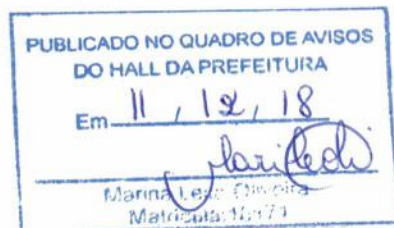 PUBLICADO NO QUADRO DE AVISOS
DO HALL DA PREFEITURA
Em 11 / 12 / 18
Marina
Matrícula: